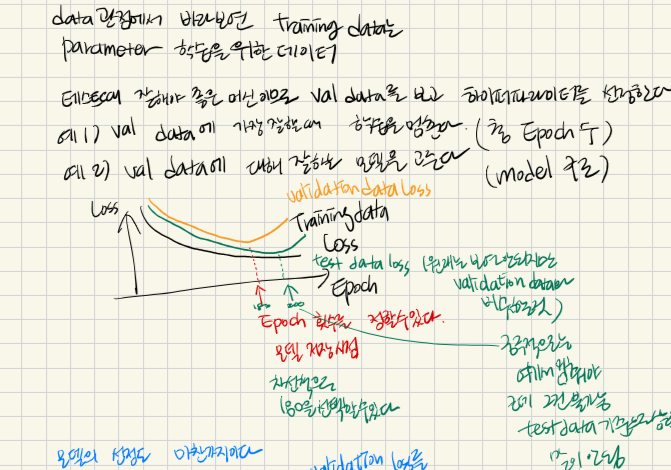 data 관점에서 바라보면 Training data는
parameter 학습을 위한 데이터
테스트에서 잘해야 좋은 머신이므로 val data를 보고 하이퍼파라미터를 선정한다
예 1) val data에 가장 잘할때 학습을 멈춘다. (총 Epoch 수)
예 2) val data에 대해 잘하는 모델을 고른다 (model 구조)
validation data loss
Loss
Training data
Loss
test data loss (원래는 보여선 안되지만
validation data와
비슷할것)
Epoch
200
Epoch 횟수를 정할수있다.
모델 저장시점
차선책으로
선택할수있다
궁극적으로는
여기서 멈춰야
근데 그건 불가능
test data
모델의 선정도 마찬가지이다
validation loss를